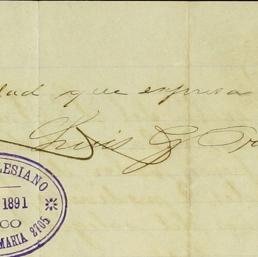 dad que expresa
Luis G
LESIANO
1891
CO
MARIA 2705